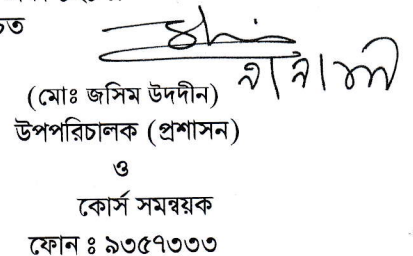 (মোঃ জসিম উদদীন)
উপপরিচালক (প্রশাসন)
ও
কোর্স সমন্বয়ক
ফোন ঃ ৯৩৫৭৩৩৩